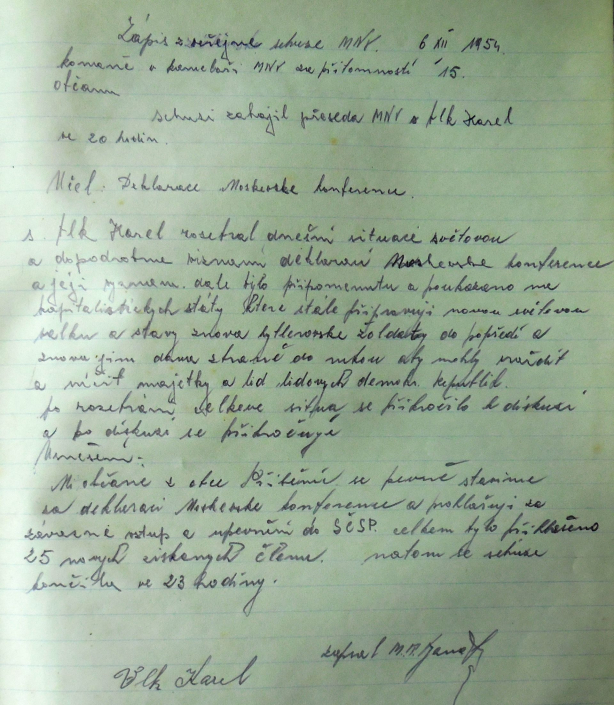 Zápis z veřejné schuze MNV. 6 XII 1954.
konané v kanceláři MNV za přítomností 15.
občanu
schuzi zahájil předseda MNV s Vlk Karel
ve 20 hodin.
Deklarace Moskevske konference.
s. Vlk Karel rozebral dnešní situaci světovou
a dopodrobna deklaraci Moskevske konference
a její vyznam. dale bylo připomenuto a poukazano na
kapitalistických státy ktere stále připravují novou světovou
valku a stavy znova hytlerovske žoldaky do popředí a
znova jim dava zbraně do rukou aby mohly vraždit
a ničit majetky a lid lidových demokr. republik.
po rozebrání celkove situa, se přikročilo k diskuzi
a po diskuzi se přikročuje
Usnešeni:
Mi občané z obce se pevně stavime
za deklaraci Moskevske konference a poklašuji za
závazné vstup a upevnění do SČSP. celkem bylo přihlašeno
25 nových ziskaných členu. natom se schuze
končila ve 23 hodiny.
zapsal
Vlk Karel